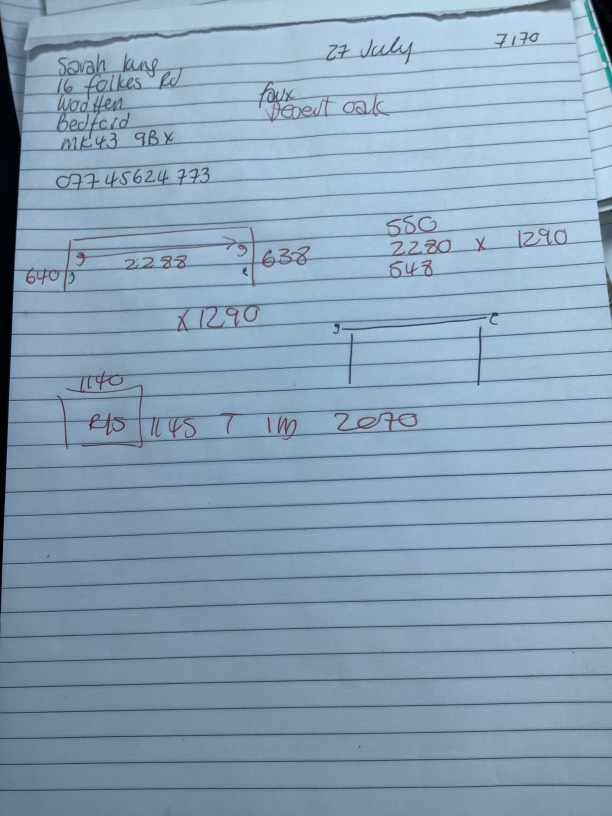 27 July 7170
Sarah King
16 folkes Rd
Wootten
Bedford
MK43 9BX
faux
Desert oak
07745624773
640 2288 638
X1290
550
2280 x 1290
548
1140
R/S 1145 T 1m 2070